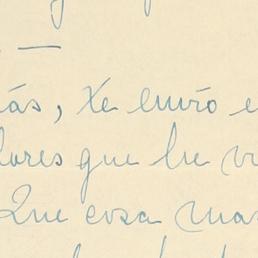 —
ás, Te envío e
lores que he v
Que cosa mas